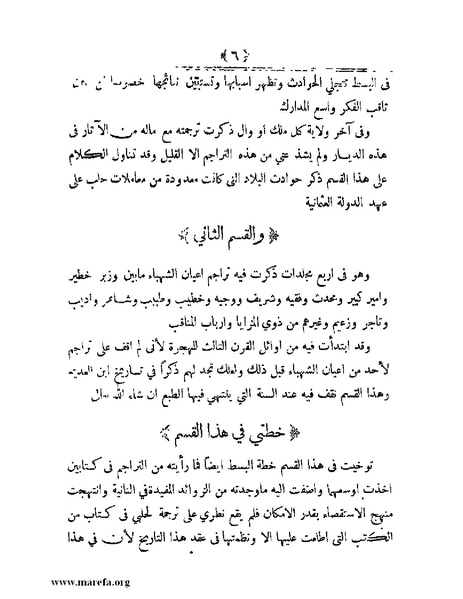 ﴿ ٦ ﴾
فى البسط تنجلي الحوادث وتظهر اسبابها وتستبين نتائجها خصوصا لمن
ثاقب الفكر واسع المدارك
وفى آخر ولاية كل ملك او وال ذكرت ترجمته مع ماله من الآثار فى
هذه الديار ولم يشذ عني من هذه التراجم الا القليل وقد تناول الكلام
على هذا القسم ذكر حوادث البلاد التى كانت معدودة من معاملات حلب على
عهد الدولة العثمانية
﴿ والقسم الثاني ﴾
وهو فى اربع مجلدات ذكرت فيه تراجم اعيان الشهباء مابين وزير خطير
وامير كبير ومحدث وفقيه وشريف ووجيه وخطيب وطبيب وشاعر واديب
وتاجر وزعيم وغيرهم من ذوي المزايا وارباب المناقب
وقد ابتدأت فيه من اوائل القرن الثالث للهجرة لأنى لم اقف على تراجم
لأحد من اعيان الشهباء قبل ذلك ولعلك تجد لهم ذكراً في تاريخ ابن العديم
وهذا القسم نقف فيه عند السنة التي ينتهي فيها الطبع ان شاء الله تعالى
﴿ خطتي في هذا القسم ﴾
توخيت فى هذا القسم خطة البسط ايضاً فما رأيته من التراجم فى كتابين
اخذت اوسعها واضفت اليه ماوجدته من الزوائد المفيدة في الثانية وانتهجت
منهج الاستقصاء بقدر الامكان فلم يقع نظري على ترجمة لحلبي فى كتاب من
الكتب التى اطلعت عليها الا ونظمتها فى عقد هذا التاريخ لأن في هذا
www.marefa.org